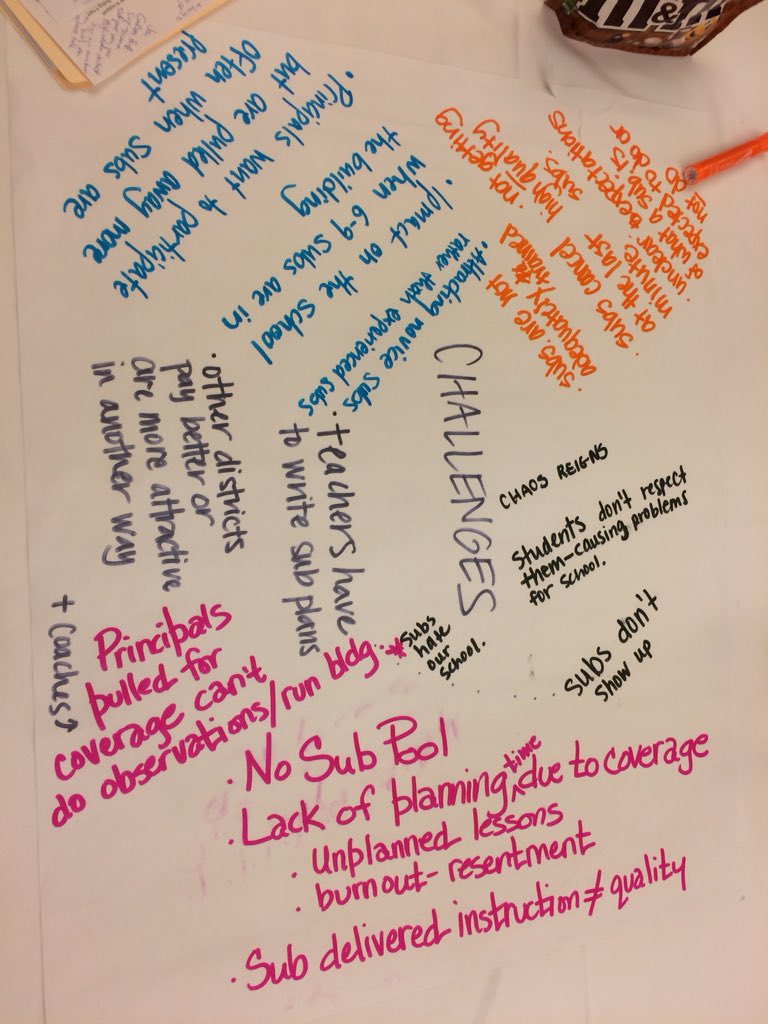 CHALLENGES
• Principals want to participate
but are pulled away more
often when subs are
present
• Impact on the school
when 6-9 subs are in
the building
• Attracting novice subs
rather than experienced subs
• not getting
high quality
subs.
• unclear expectations
& what a sub is
expected to do or
not do
• subs cancel
at the last
minute
• subs are not
adequately trained
• other districts
pay better or
are more attractive
in another way
• teachers have
to write sub plans
CHAOS REIGNS
Students don't respect
them-causing problems
for school.
Subs
hate
our
school.
Subs don't
show up
+ Coaches
Principals
pulled for
coverage can't
do observations/run bldg.
• No Sub Pool
• Lack of planning time due to coverage
• Unplanned lessons
• burnout- resentment
• Sub delivered instruction ≠ quality
m&m